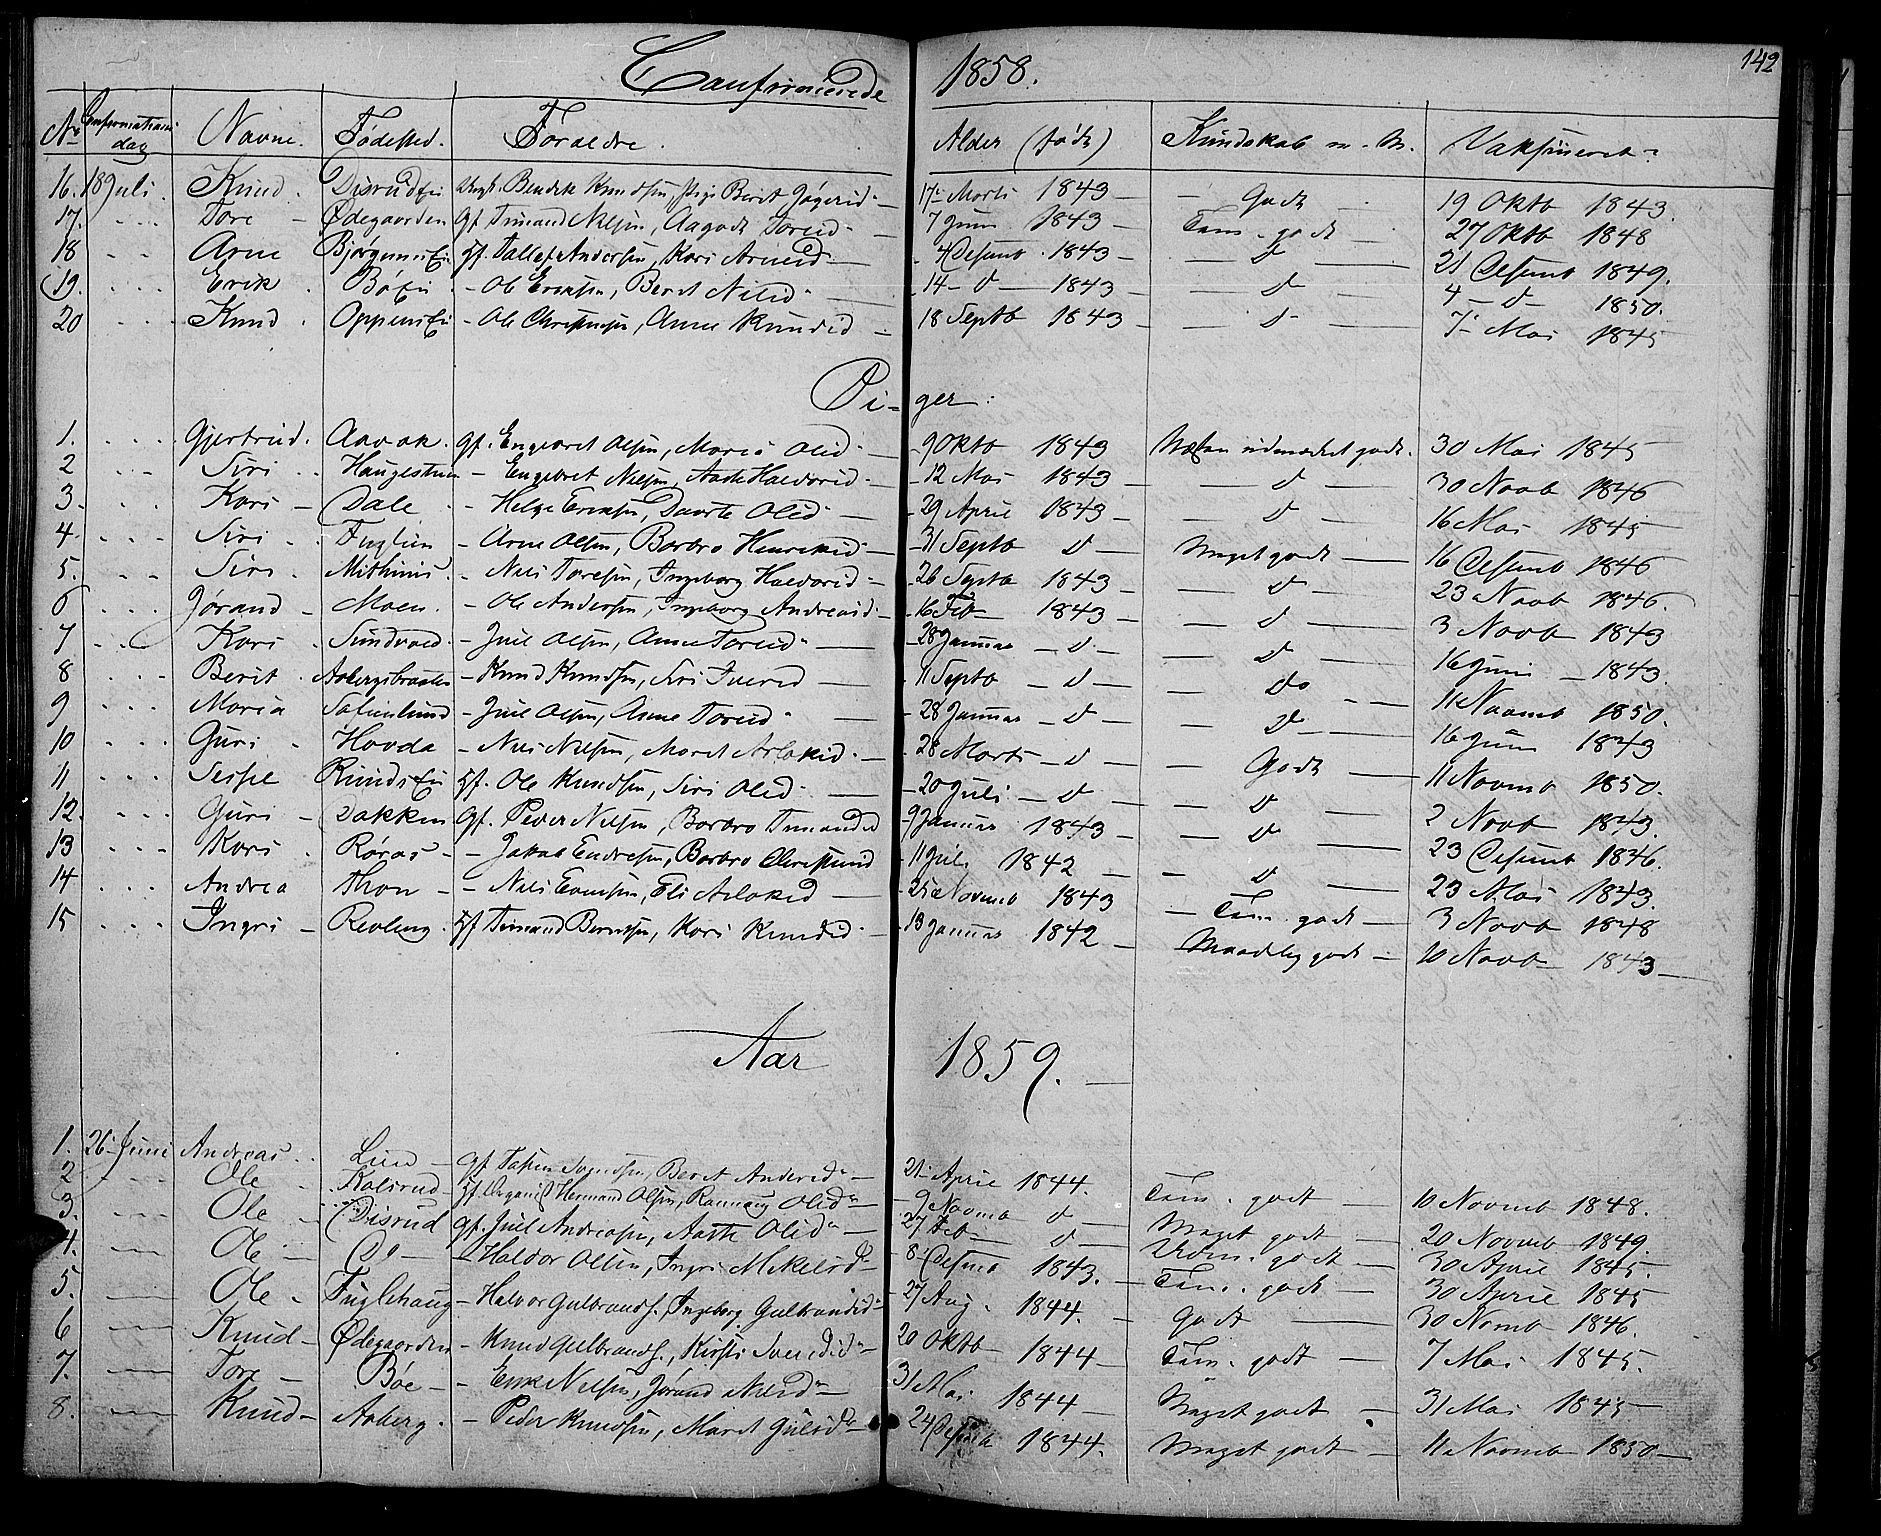 142
Confirmerede 1858.
No Confirmations dag Navne. Fødested. Foraeldre. Alder (født) Kundskab m. M. Vaksineret.
16. 18 Juli. Knud. Disrud Bendik Knudsen, Pige Berit 17 Marts 1843 — Godt — 19 Oktb 1843.
17. Tore — Ødegaarden gf. Trnand Nilsen, Aagodt Torид 7 Juni 1843 — Tem. godt — 27 Oktb 1848
18 Arne gf. Tollef Andersen, Kari Arneid — 4 Desemb. 1843 — d — 21 Desemb 1849.
19. Erik. — Ole Eriksen, Beret Nilsd — 14 — d — 1843 — d — 4 — d — 1850.
20 Knud. — Ole Christensen, Anne Knudsd — 18 Septb 1843 — d — 7 Mai 1845
Piger:
1. Gjertrud. Aavak. gf. Engebret Olsen, Maria Olsd — 9 Oktb 1843 Næsten udmærket godt. 30 Mai 1845
2 Siri Haugestuen — Engebret Nilsen, Aaste Haldorsd — 12 Mai 1843 — d — 30 Novb 1846
3. Kari — Dale — Helge Eriksen, Dorte Olsd — 29 April 1843 — d — 16 Mai 1845
4. Siri — Arne Olsen, Barbro Henriksd — 31 Septb d — Meget godt — 16 Desemb 1846
5. Siri — Nils Toresen, Ingeborg Haldorsd — 26 Septb 1843 — d — 23 Novb 1846.
6 Jørand — Moen. — Ole Andersen, Ingeborg Andreasd — 16 Feb 1843 — d — 3 Novb 1843
7 Kari Sundvold. — Juel Olsen, Anne Toresd — 28 Januar — d — d — 16 Juni 1843
8 Berit Aabergsbraaten — Knud Knudsen, Siri Iversd — 11 Septb — d — do 11 Novemb 1850.
9 Maria — Juel Olsen, Anne Toresd — 28 Januar — d — d — 16 Juni 1843
10 Guri Hovda — Nils Nilsen, Maret Aslaksd — 28 Marts — d — Godt — 11 Novemb 1850.
11 — Ole Knudsen, Siri Olsd — 20 Juli — d — d — 2 Novb 1843.
12. Guri — Bakken gf. Peder Nilsen, Barbro — 9 Januar 1843 — d — 23 Desemb 1846.
13 Kari Røraas — Jakob Endresen, Barbro — 11 Juli 1842 — d — 23 Mai 1843.
14 Andrea Thon — Nils Evensen, Eli Aslaksd — 25 Novemb 1843 — Tem. godt — 3 Novb 1848
15 Ingri — Revling Kari Knudsd — 18 Januar 1842 — Maadelig godt — 10 Novb 1843
Aar 1859.
1. 26 Juni Andreas Lien — Beret Andersd — 21 April 1844. Tem. godt — 10 Novemb 1848.
2 Ole Kolsrud Organist Hermand Olsen, Rannaug Olsd — 9 Novemb d — Meget godt — 20 Novemb 1849.
3. Ole Disrud gf. Juel Andreasen, Aaste Olsd — 27 Feb d — godt — 30 April 1845.
4. Ole — Do — — Haldor Olsen, Ingri Mikelsd — 8 Desemb 1843. — Tem. godt — 30 April 1845
5. Ole Fuglehaug — Halvor Gulbrands., Ingeborg Gulbrandsd — 27 Aug. 1844. — Godt — 30 Novemb 1846.
6 Knud — Ødegaarden — Knud Gulbrands., Kirsti — 20 Oktb 1844 — Tem. godt — 7 Mai 1845.
7. Tore — Bøe — — Erik Nilsen, Jørand Nilsd — 31 Mai 1844 — Meget godt — 31 Mai 1845
8. Knud — Aaberg. — Peder Knudsen, Maret — 24 Desemb 1844. Meget godt — 11 Novemb 1850